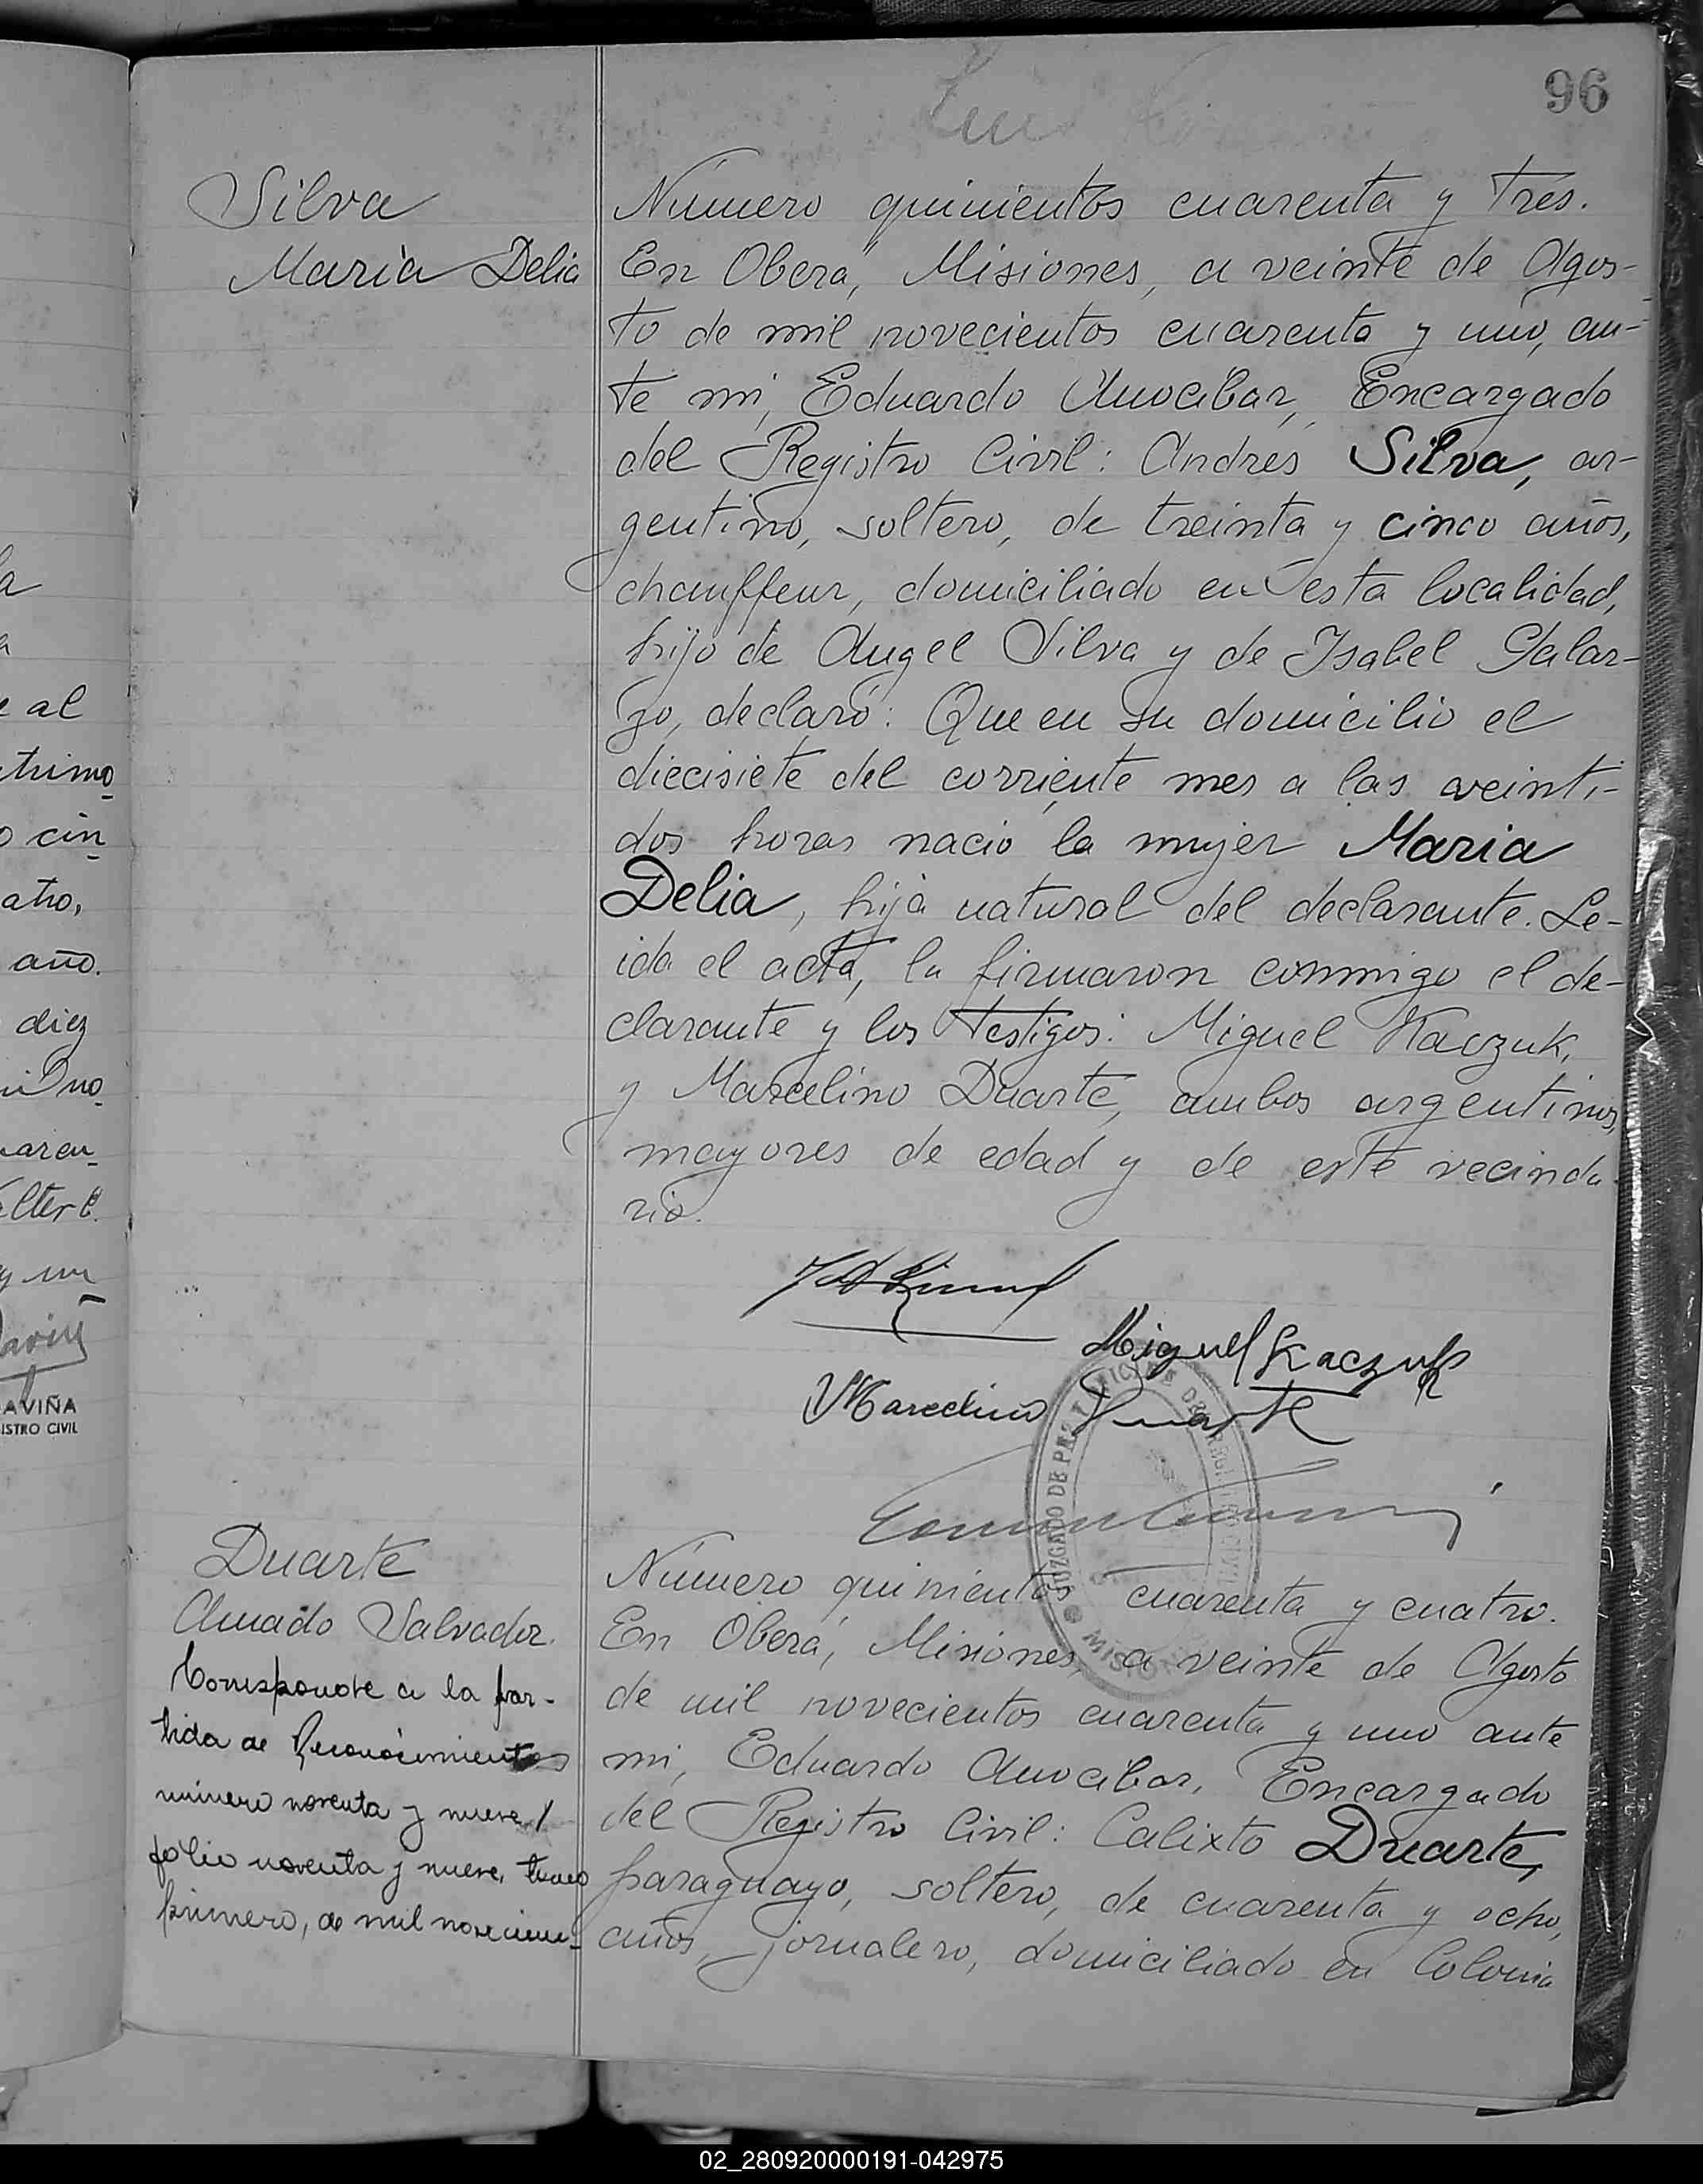 96
Silva
Maria Delia
Número quinientos cuarenta y tres.
En Oberá, Misiones, a veinte de Agos-
to de mil novecientos cuarenta y uno, an-
te mi, Eduardo Anocibar, Encargado
del Registro Civil: Andrés Silva, ar-
gentino, soltero, de treinta y cinco años,
chauffeur, domiciliado en esta localidad,
hijo de Angel Silva y de Isabel Galar-
zo, declaró: Que en su domicilio el
diecisiete del corriente mes a las veinti-
dos horas nació la mujer Maria
Delia, hija natural del declarante. Le-
ida el acta, la firmaron conmigo el de-
clarante y los testigos: Miguel Kaczuk,
y Marcelino Duarte, ambos argentinos,
mayores de edad y de este vecinda
rio.
Miguel Kaczuk
Marcelino Duarte
JUZGADO DE PAZ
Duarte
Amado Salvador.
Corresponde a la par-
tida de Reconocimientos
número noventa y nueve,
folio noventa y nueve, tomo
primero, de mil novecien-
Número quinientos cuarenta y cuatro.
En Oberá, Misiones, a veinte de Agosto
de mil novecientos cuarenta y uno ante
mi, Eduardo Anocibar, Encargado
del Registro Civil: Calixto Duarte,
paraguayo, soltero, de cuarenta y ocho,
años, jornalero, domiciliado en Colonia
e al
trimo
o cin
atro,
año.
diez
AVIÑA
ISTRO CIVIL
02_280920000191-042975